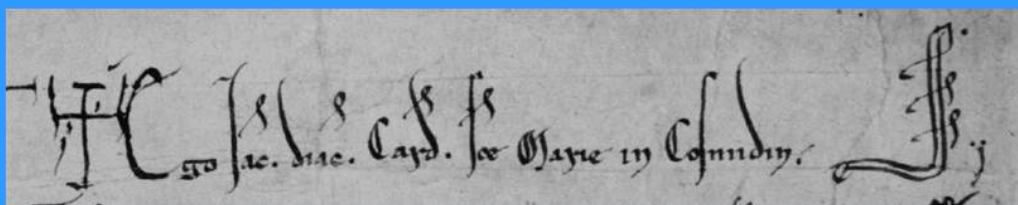 ✝ Ego Iac. diac. Card. sce Marie in Cosmidin. ss